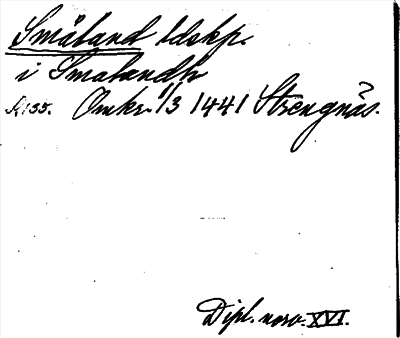 Småland ldskp.
i Smalandh
A 135. Omkr. 1/3 1441 Strengnäs.
Dipl. norv. XVI.